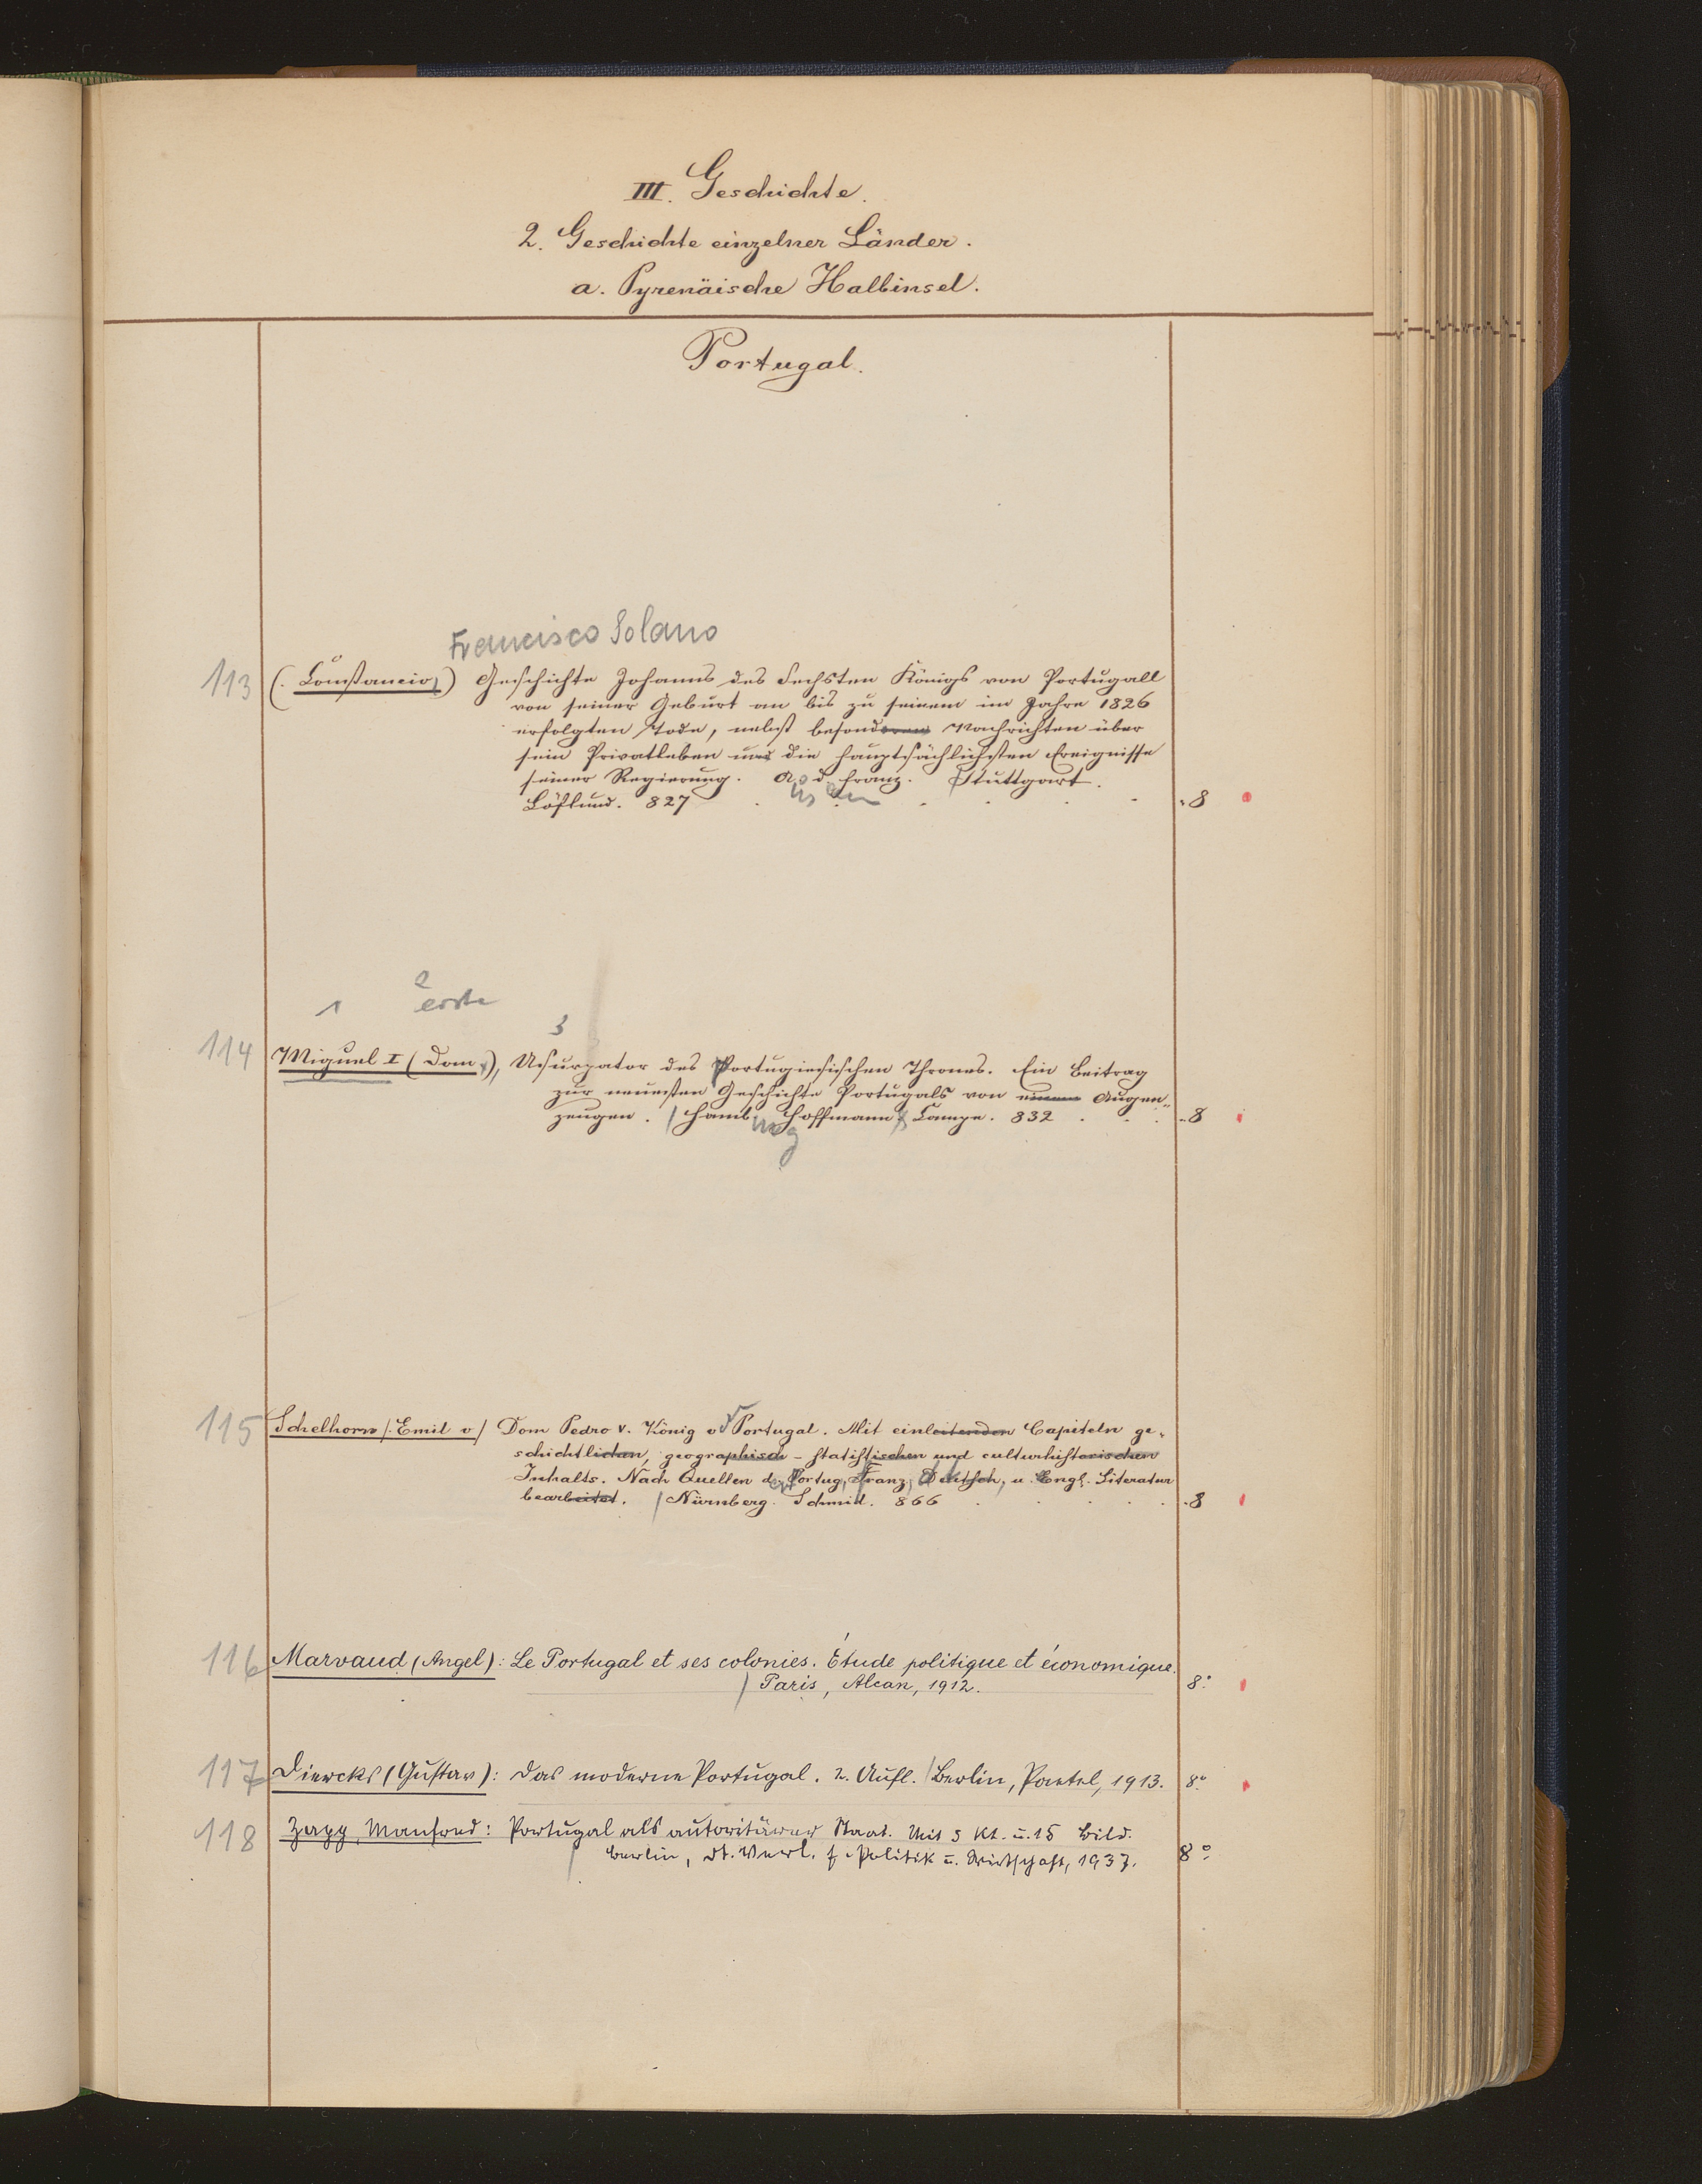 III. Geschichte.
2. Geschichte einzelner Länder.
a. Pyrenäische Halbinsel.
Portugal.
Francisco Solano
113 (. Constancio) Geschichte Johanns des Sechsten Königs von Portugall
von seiner Geburt an bis zu seinem im Jahre 1826
erfolgten Tode, nebst besonderen Nachrichten über
sein Privatleben und die hauptsächlichsten Ereignisse
seiner Regierung. A. d. Franz. Stuttgart.
Löflund. 827 . . . . . 8
1 2 erste 3
114 Miguel I (Dom), Usurpator des Portugiesischen Thrones. Ein Beitrag
zur neuesten Geschichte Portugals von einem Augen-
zeugen. / Hamburg Hoffmann & Campe. 832 . . . 8
115 Schelhorn /. Emil v / Dom Pedro V. König v Portugal. Mit einleitenden Capiteln ge-
schichtlichen, geographisch-statistischen und culturhistorischen
Inhalts. Nach Quellen der Portug, Franz, Deutsch, u. Engl. Literatur
bearbeitet. / Nürnberg. Schmid. 866 . . . . . 8
116 Marvaud (Angel): Le Portugal et ses colonies. Étude politique et économique.
/ Paris, Alcan, 1912. 8°
117 Diercks (Gustav): Das moderne Portugal. 2. Aufl. / Berlin, Paetel, 1913. 8°
118 Zapp, Manfred: Portugal als autoritärer Staat. Mit 5 Kt. u. 15 Bild.
/ Berlin, Dt. Verl. f. Politik u. Wirtschaft, 1937. 8°